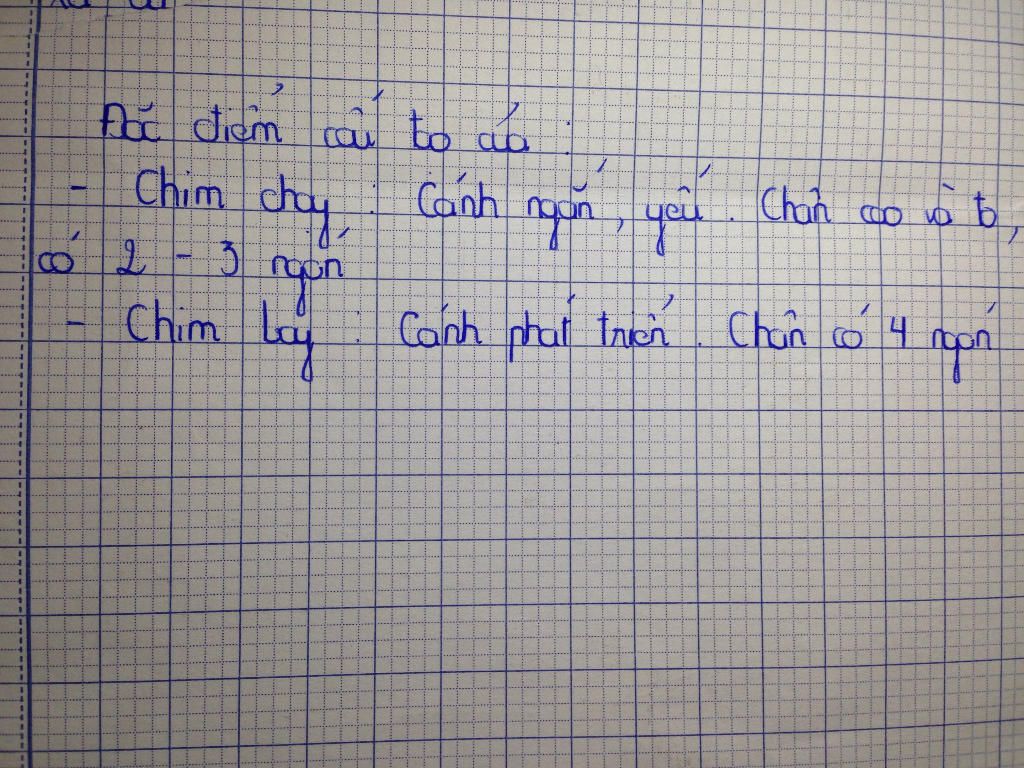 Đặc điểm cấu tạo của :
- Chim chạy : Cánh ngắn, yếu. Chân cao và to,
có 2 - 3 ngón
- Chim bay : Cánh phát triển. Chân có 4 ngón